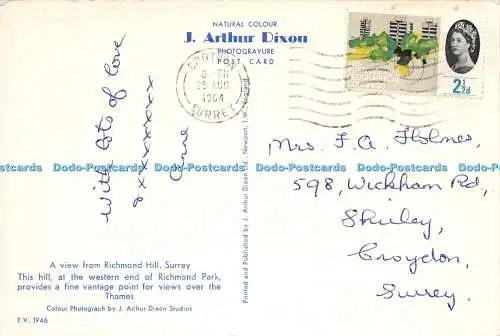 NATURAL COLOUR
J. Arthur Dixon
PHOTOGRAVURE
POST CARD
CROYDON
8-PM
25 AUG
1964
SURREY
2½d
With lots of love
xxxxxxxxxx
Anne
Printed and Published by J. Arthur Dixon Ltd., Newport, I.W., England.
Mrs. F. A. Holmes,
598, Wickham Rd,
Shirley,
Croydon,
Surrey.
Dodo-Postcards Dodo-Postcards Dodo-Postcards Dodo-Postcards
A view from Richmond Hill, Surrey
This hill, at the western end of Richmond Park,
provides a fine vantage point for views over the
Thames
Colour Photograph by J. Arthur Dixon Studios
T.V. 1946